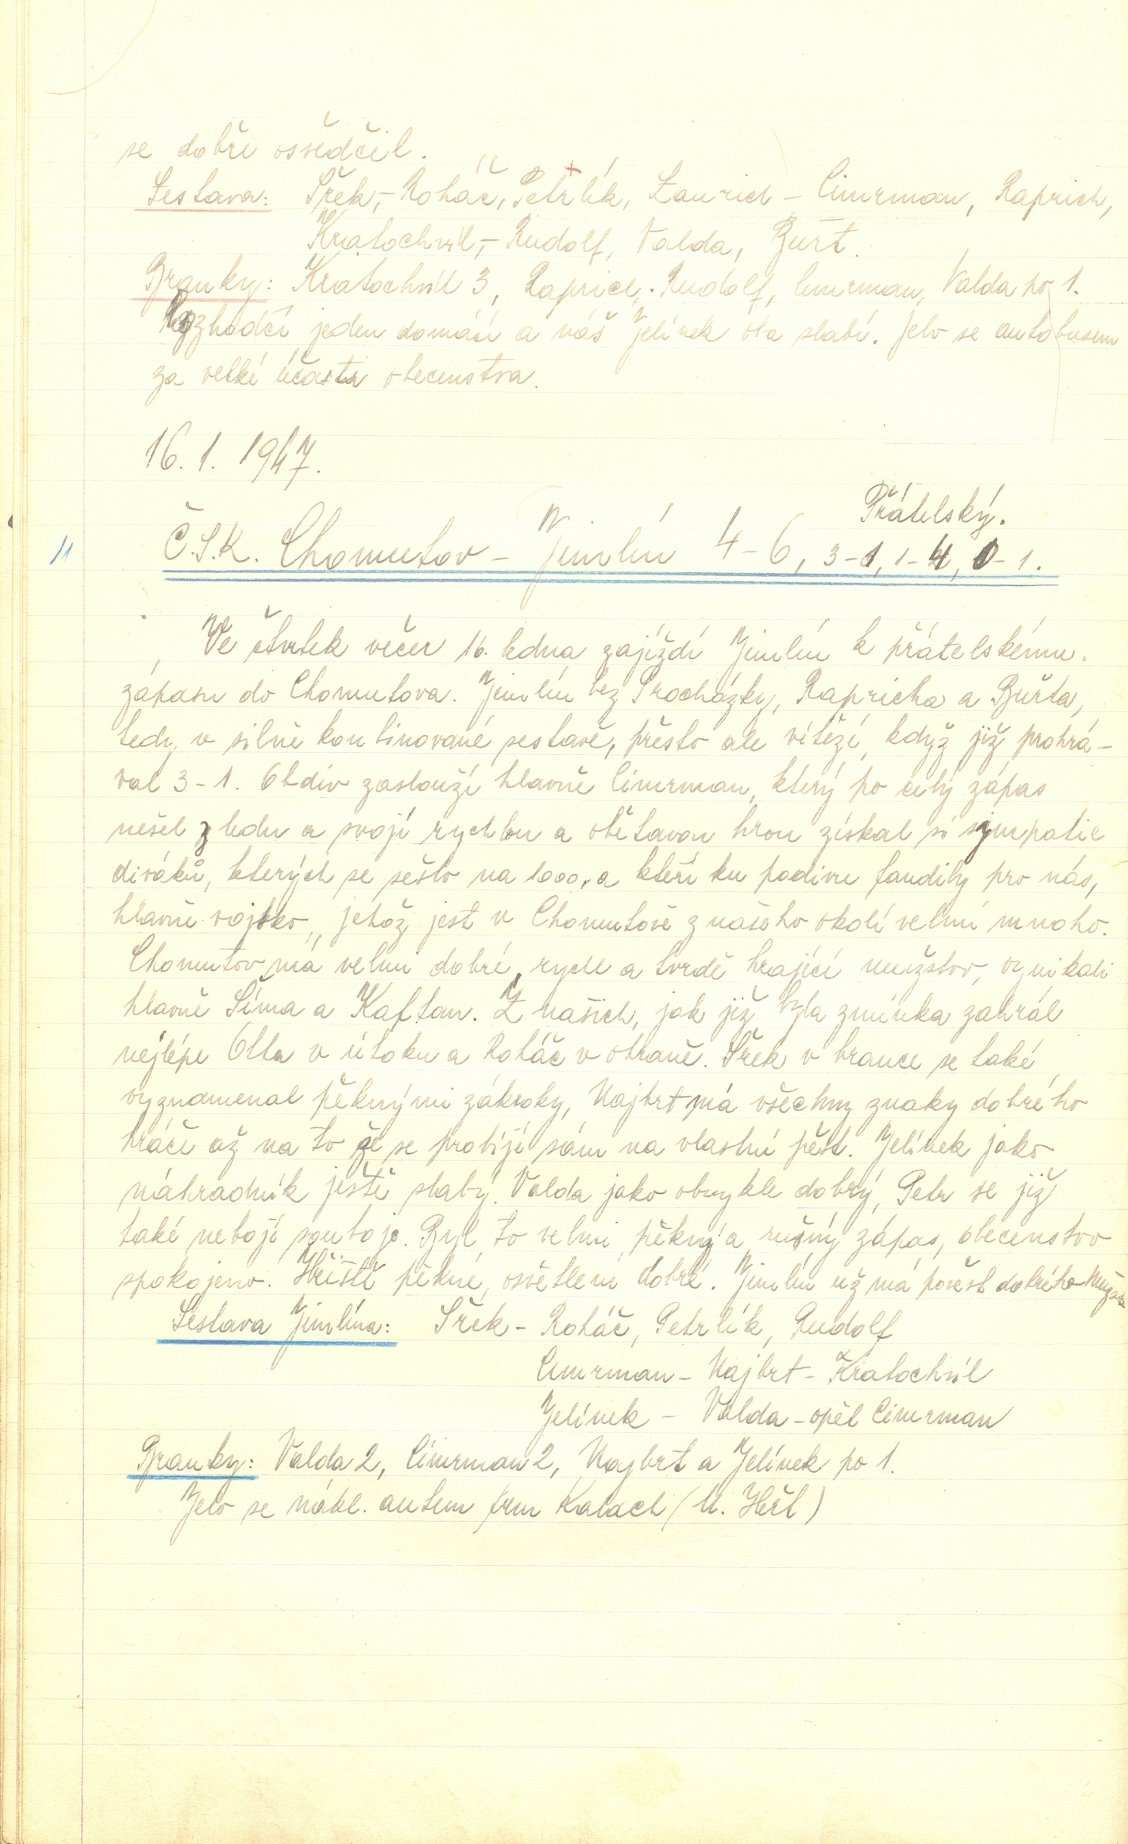 se dobře osvědčil.
Sestava: Sřek,- Roháč, Petrlík, Laurich - Cimrman, Raprich,
Kratochvíl,- Rudolf, Valda, Buřt.
Branky: Kratochvíl 3, Raprich, Rudolf, Cimrman, Valda po 1.
Rozhodčí jeden domácí a náš Jelínek oba slabí. Jelo se autobusem
za velké účasti obecenstva.
16. 1. 1947.
Přátelský.
11 Č.S.K. Chomutov - Jimlín 4-6, 3-1, 1-4, 0-1.
Ve čtvrtek večer 16. ledna zajíždí Jimlín k přátelskému
zápasu do Chomutova. Jimlín bez Procházky, Rapricha a Buřta,
tedy v silně kombinované sestavě, přesto ale vítězí, když již prohrá-
val 3-1. Obdiv zaslouží hlavně Cimrman, který po celý zápas
nešel z ledu a svojí rychlou a obětavou hrou získal si sympatie
diváků, kterých se sešlo na 1000, a kteří ku podivu fandily pro nás,
hlavně vojsko, jehož jest v Chomutově z našeho okolí velmi mnoho.
Chomutov má velmi dobré, rychle a tvrdě hrající mužstvo, vynikali
hlavně Šíma a Kaftan. Z našich, jak již byla zmínka zahrál
nejlépe Otta v útoku a Roháč v obraně. Sřek v brance se také
vyznamenal pěknými zákroky, Najbrt má všechny znaky dobrého
hráče až na to že se probíjí sám na vlastní pěst. Jelínek jako
náhradník ještě slabý. Valda jako obvykle dobrý, Petr se již
také nebojí souboje. Byl to velmi pěkný a rušný zápas, obecenstvo
spokojeno. Hřiště pěkné, osvětlení dobré. Jimlín už má pověst dobrého mužstva
Sestava Jimlína: Sřek - Roháč, Petrlík, Rudolf
Cimrman - Najbrt - Kratochvíl
Jelínek - Valda - opět Cimrman
Branky: Valda 2, Cimrman 2, Najbrt a Jelínek po 1.
Jelo se nákl. autem firm Kalach (M. Hřb)